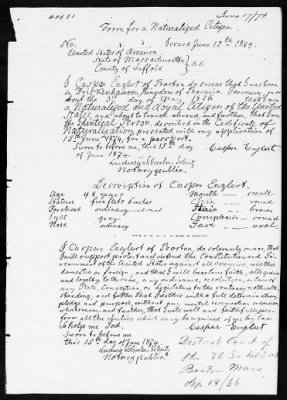 Form for a Naturalized Citizen
No.                Issued June 15th 1874.
United States of America.
State of Massachusetts } S.S.
County of Suffolk
I Casper Englert of Boston, do swear that I was born
in Kingdom of Bavaria, Germany, on or
about the day of May 1826 that I am
a Naturalized and loyal Citizen of the United
States, and about to travel abroad, and further, that I am
the Identical Person, described in the Certificate of
Naturalization, presented with my application of
15th June 1874, for a passport.
Sworn to before me, this 15th day      Casper Englert
of June 1874.
Notary public.
Description of Casper Englert.
Age      48 years      Mouth — small
Stature      five feet      Chin — round
Forehead      ordinary      Hair — brown
Eyes      gray      Complexion — round
Nose      ordinary      Face — oval
I Casper Englert of Boston, do solemnly swear, that
I will support, protect and defend the Constitution and Go-
vernment of the United States against all enemies, whether
domestic or foreign; and that I will bear true faith, allegiance
and loyalty to the same, any ordinance, resolution, or law of
any State, Convention, or Legislature to the contrary notwith-
standing, and further that I do this with a full determination,
pledge and purpose, without any mental reservation or evasion
whatsoever, and further, that I will well and faithfully per-
form all the duties which may be required of me by law.
So help me God.      Casper Englert
Sworn to before me
this 15th day of June 1874
Notary public.
District Court of
the US
Boston Mass
Sep 18/66